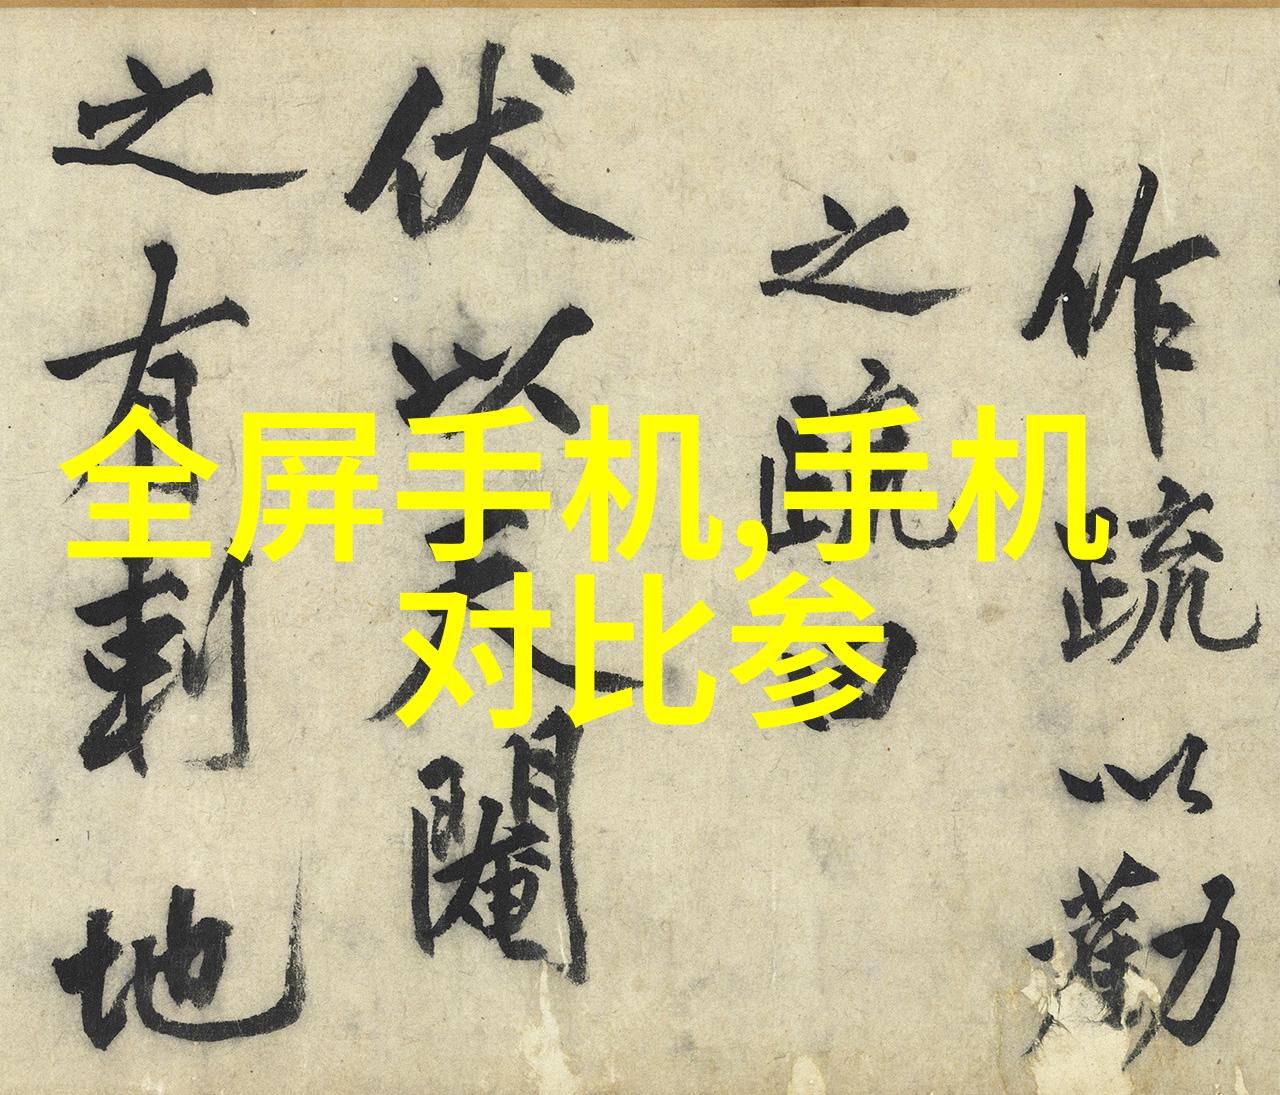 作疏以勸
之疏曰
伏以天閹
之有刺地
全屏手机,手机
对比参